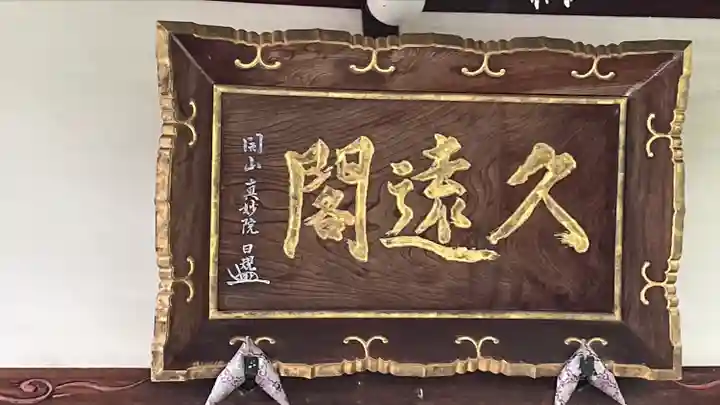 久遠閣
開山真妙院日耀